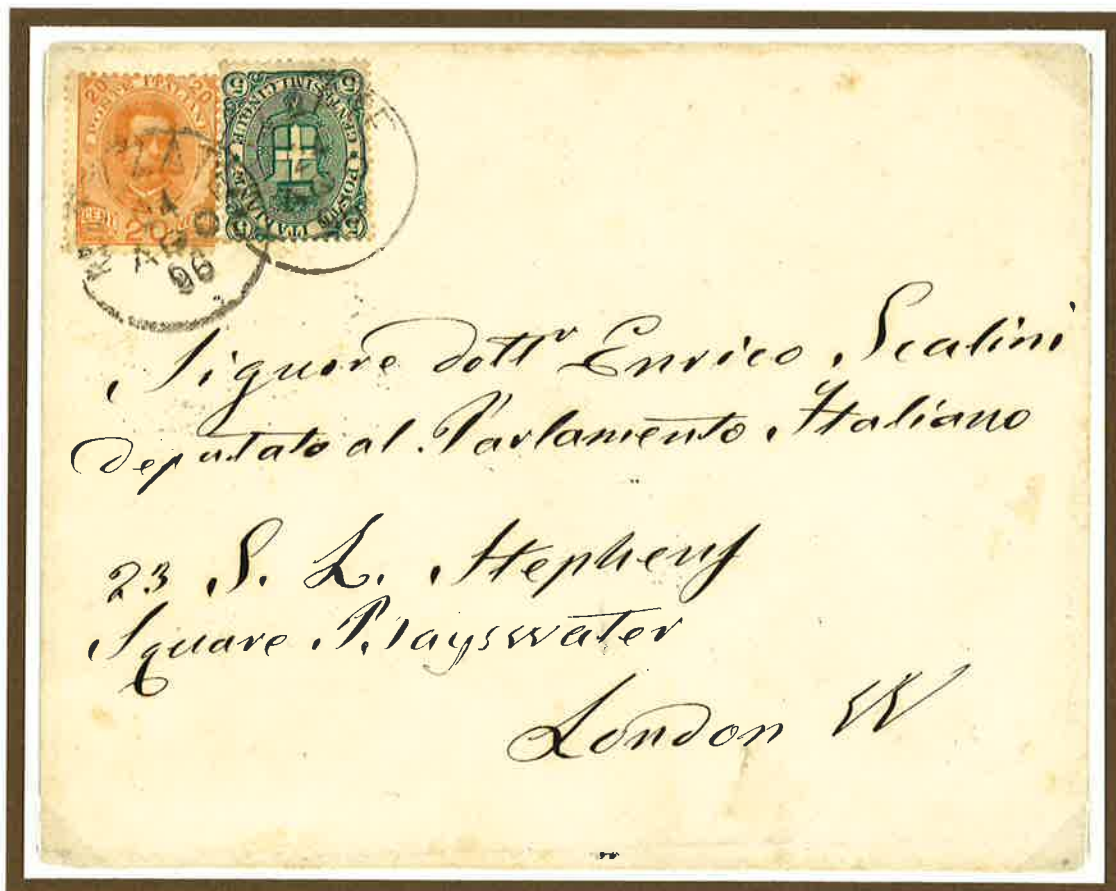 20 20
POSTE ITALIANE
CENT 20
5 5
CENTESIMI CINQUE
POSTE ITALIANE
5 5
AGO
96
Signore dottr Enrico Scalini
deputato al Parlamento Italiano
23 S. L. Stephens
Square Bayswater
London W